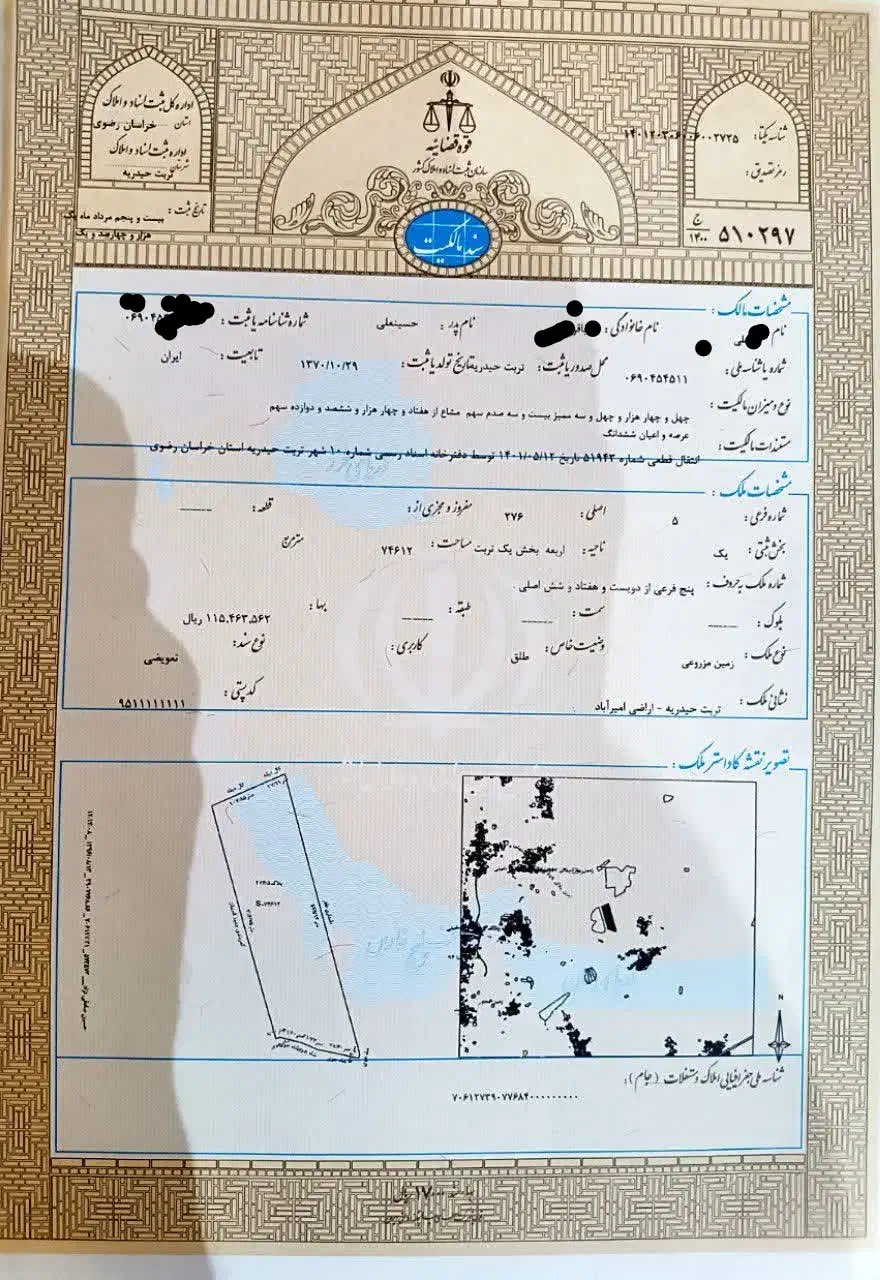 اداره کل ثبت اسناد و املاک
استان خراسان رضوی
اداره ثبت اسناد و املاک
شهرستان تربت حیدریه
تاریخ ثبت: بیست و پنجم مرداد ماه یک
هزار و چهارصد و یک
قوه قضائیه
سازمان ثبت اسناد و املاک کشور
سند مالکیت
شناسه یکتا:
رمز تصدیق:
ج
۱۴۰۰
۵۱۰۲۹۷
مشخصات مالک:
نام
نام خانوادگی:
نام پدر: حسینعلی
شماره شناسنامه یا ثبت:
شماره یا شناسه ملی: ۰۶۹۰۴۵۴۵۱۱
محل صدور یا ثبت: تربت حیدریه
تاریخ تولد یا ثبت: ۱۳۷۰/۱۰/۲۹
تابعیت: ایران
نوع و میزان مالکیت: چهل و چهار هزار و چهل و سه ممیز بیست و سه صدم سهم مشاع از هفتاد و چهار هزار و ششصد و دوازده سهم
عرصه و اعیان ششدانگ
مستندات مالکیت: انتقال قطعی شماره ۵۱۹۴۳ تاریخ ۱۴۰۱/۰۵/۱۲ توسط دفترخانه اسناد رسمی شماره ۱۰ شهر تربت حیدریه استان خراسان رضوی
مشخصات ملک:
شماره فرعی: ۵
اصلی: ۲۷۶
مفروز و مجزی از:
قطعه: ------
بخش ثبتی: یک
ناحیه: اربعه بخش یک تربت
مساحت: ۷۴۶۱۲ مترمربع
شماره ملک به حروف: پنج فرعی از دویست و هفتاد و شش اصلی .
بلوک: ------
سمت: ------
طبقه: ------
بها: ۱۱۵،۴۶۳،۵۶۲ ریال
نوع ملک: زمین مزروعی
وضعیت خاص: طلق
کاربری:
نوع سند: تعویضی
نشانی ملک: تربت حیدریه - اراضی امیرآباد
کد پستی: ۹۵۱۱۱۱۱۱۱۱
تصویر نقشه کاداستر ملک:
S=۷۴۶۱۲
N
شناسه ملی جغرافیایی املاک و مستغلات (جام):
۷۰۶۱۲۷۳۹۰۷۷۶۸۴۰۰۰۰۰۰۰۰۰